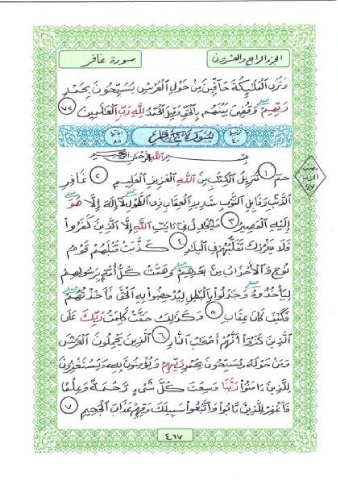 الجزء الرابع والعشرون
سورة غافر
وَتَرَى الْمَلَائِكَةَ حَافِّينَ مِنْ حَوْلِ الْعَرْشِ يُسَبِّحُونَ بِحَمْدِ
رَبِّهِمْ وَقُضِيَ بَيْنَهُم بِالْحَقِّ وَقِيلَ الْحَمْدُ لِلَّهِ رَبِّ الْعَالَمِينَ ٧٥
سورة غافر
بِسْمِ اللَّهِ الرَّحْمَٰنِ الرَّحِيمِ
حم ١ تَنزِيلُ الْكِتَابِ مِنَ اللَّهِ الْعَزِيزِ الْعَلِيمِ ٢ غَافِرِ
الذَّنبِ وَقَابِلِ التَّوْبِ شَدِيدِ الْعِقَابِ ذِي الطَّوْلِ لَا إِلَٰهَ إِلَّا هُوَ
إِلَيْهِ الْمَصِيرُ ٣ مَا يُجَادِلُ فِي آيَاتِ اللَّهِ إِلَّا الَّذِينَ كَفَرُوا
فَلَا يَغْرُرْكَ تَقَلُّبُهُمْ فِي الْبِلَادِ ٤ كَذَّبَتْ قَبْلَهُمْ قَوْمُ
نُوحٍ وَالْأَحْزَابُ مِن بَعْدِهِمْ وَهَمَّتْ كُلُّ أُمَّةٍ بِرَسُولِهِمْ
لِيَأْخُذُوهُ وَجَادَلُوا بِالْبَاطِلِ لِيُدْحِضُوا بِهِ الْحَقَّ فَأَخَذْتُهُمْ
فَكَيْفَ كَانَ عِقَابِ ٥ وَكَذَٰلِكَ حَقَّتْ كَلِمَتُ رَبِّكَ عَلَى
الَّذِينَ كَفَرُوا أَنَّهُمْ أَصْحَابُ النَّارِ ٦ الَّذِينَ يَحْمِلُونَ الْعَرْشَ
وَمَنْ حَوْلَهُ يُسَبِّحُونَ بِحَمْدِ رَبِّهِمْ وَيُؤْمِنُونَ بِهِ وَيَسْتَغْفِرُونَ
لِلَّذِينَ آمَنُوا رَبَّنَا وَسِعْتَ كُلَّ شَيْءٍ رَّحْمَةً وَعِلْمًا
فَاغْفِرْ لِلَّذِينَ تَابُوا وَاتَّبَعُوا سَبِيلَكَ وَقِهِمْ عَذَابَ الْجَحِيمِ ٧
٤٦٧